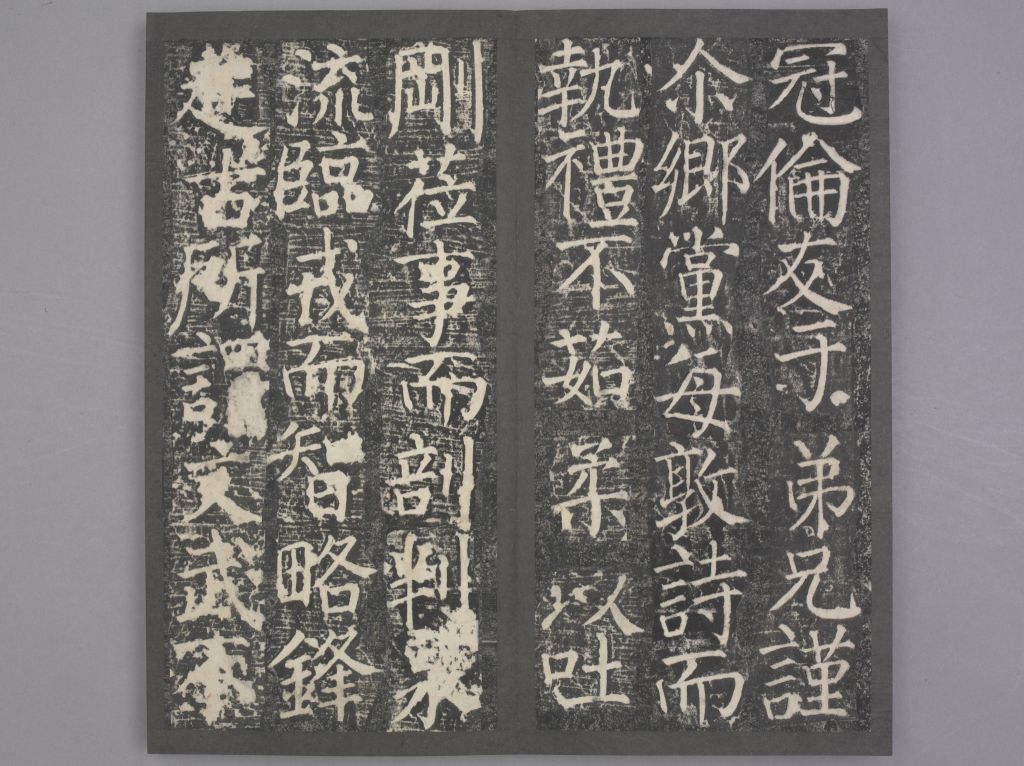 冠倫友于弟兄謹
尒鄉黨每敦詩而
執禮不茹柔以吐
剛莅事而剖判泉
流臨戎而智略鋒
起古所謂文武不